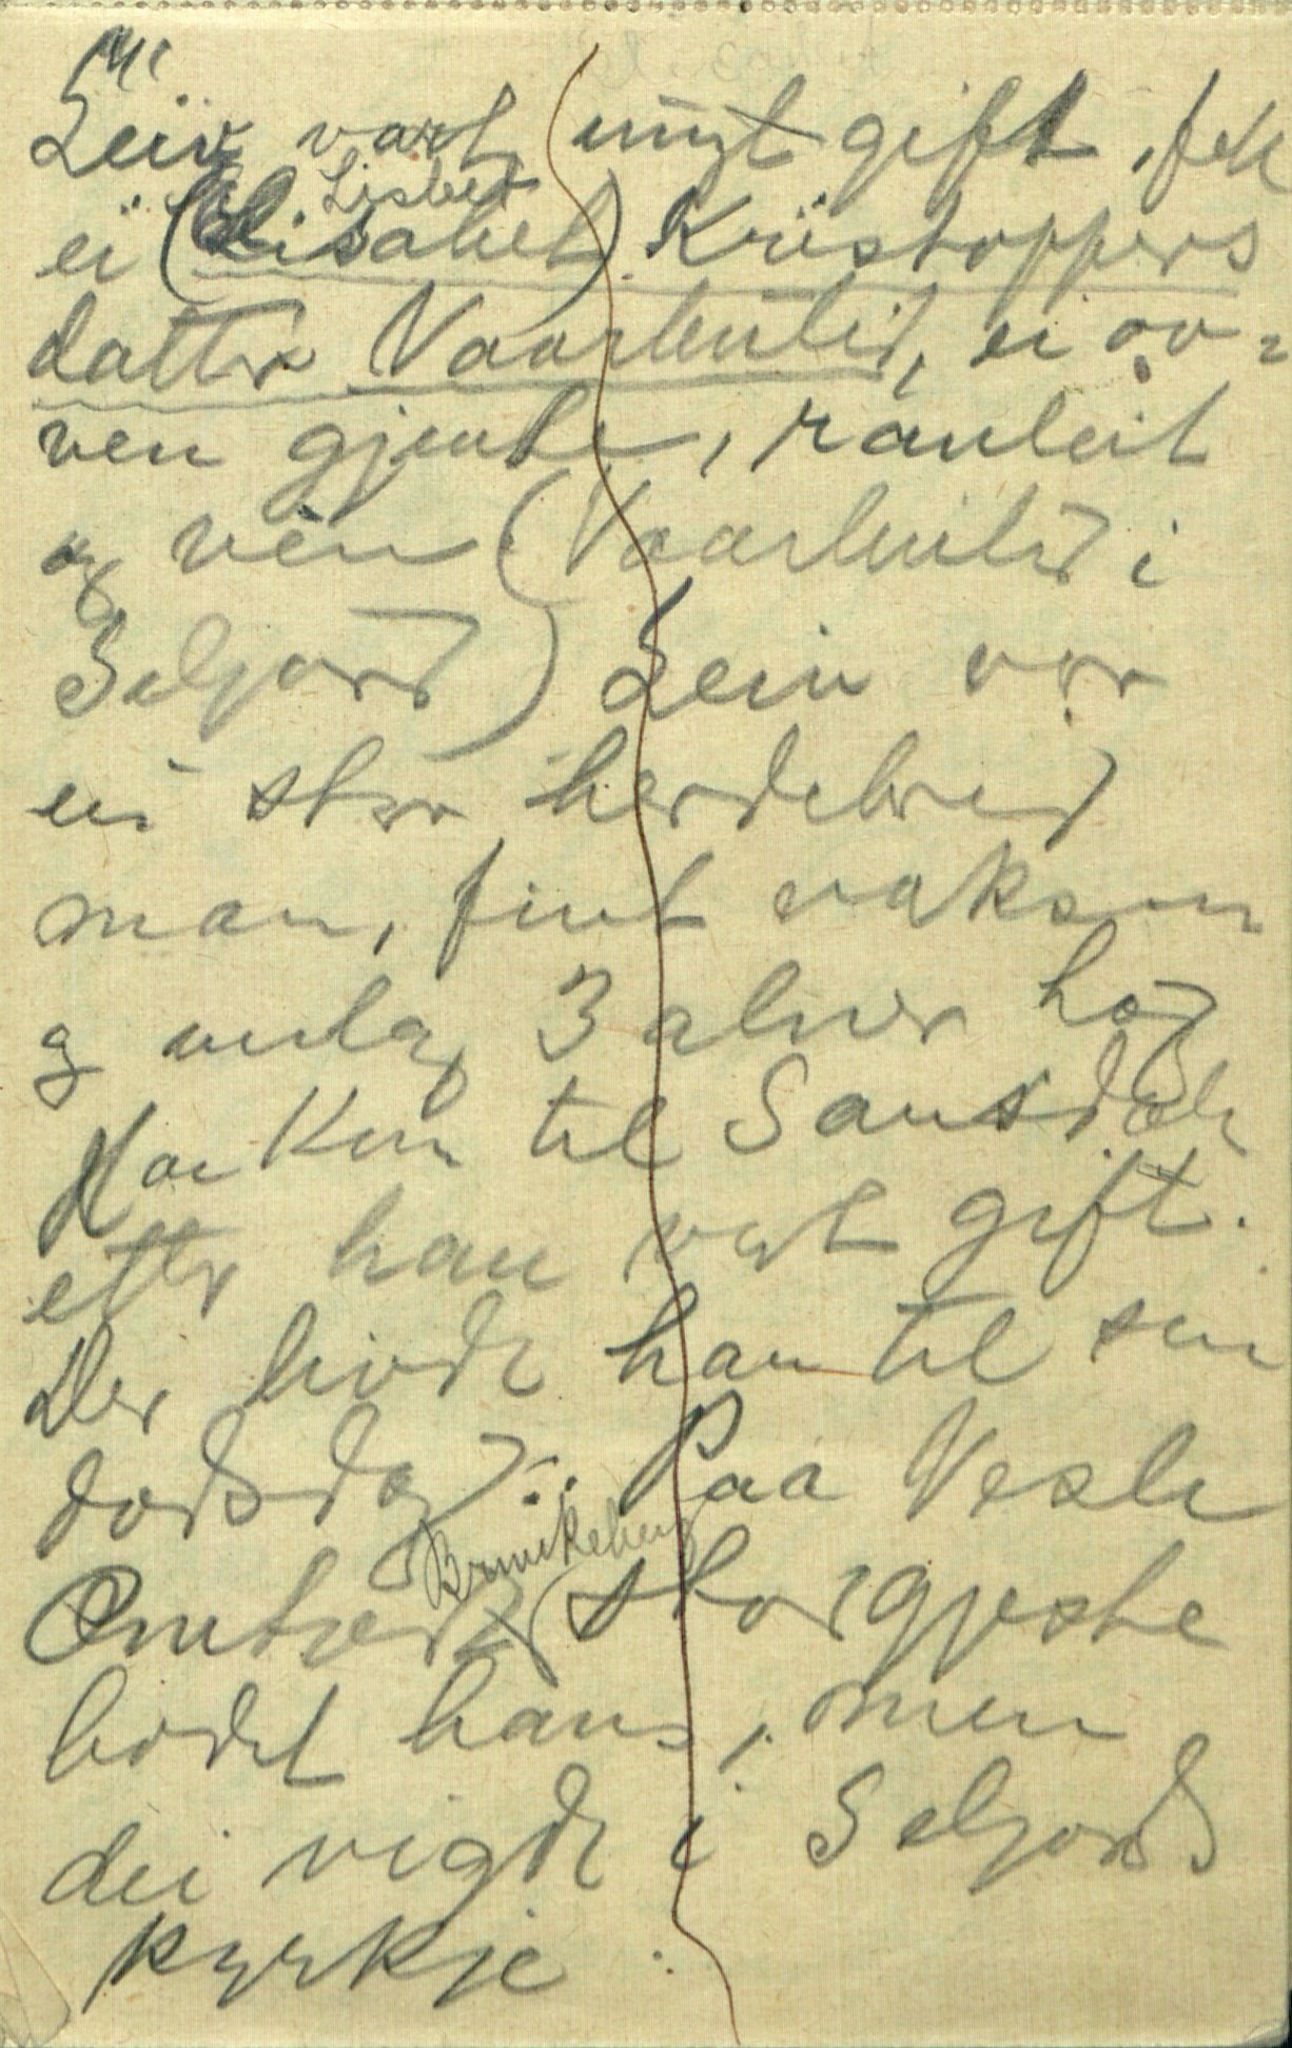 Leiv vart ungt gift, fekk
Lisbet
ei (Elisabet) Kristoffers
datter Vaarlinlid, ei ov-
ven gjente, rauleit
og vén (Vaarlinlid i
Seljord) Leiv var
ein stor herdebreid
man, fint vaksen
og umlag 3 alner høg
Han kom til Sausdøli
etter han vart gift.
Der livde han til sin
dødsdag. Paa Vesle
Brunkeberg
storgjeste
bodet hans, men
dei vigde i Seljords
kyrkje